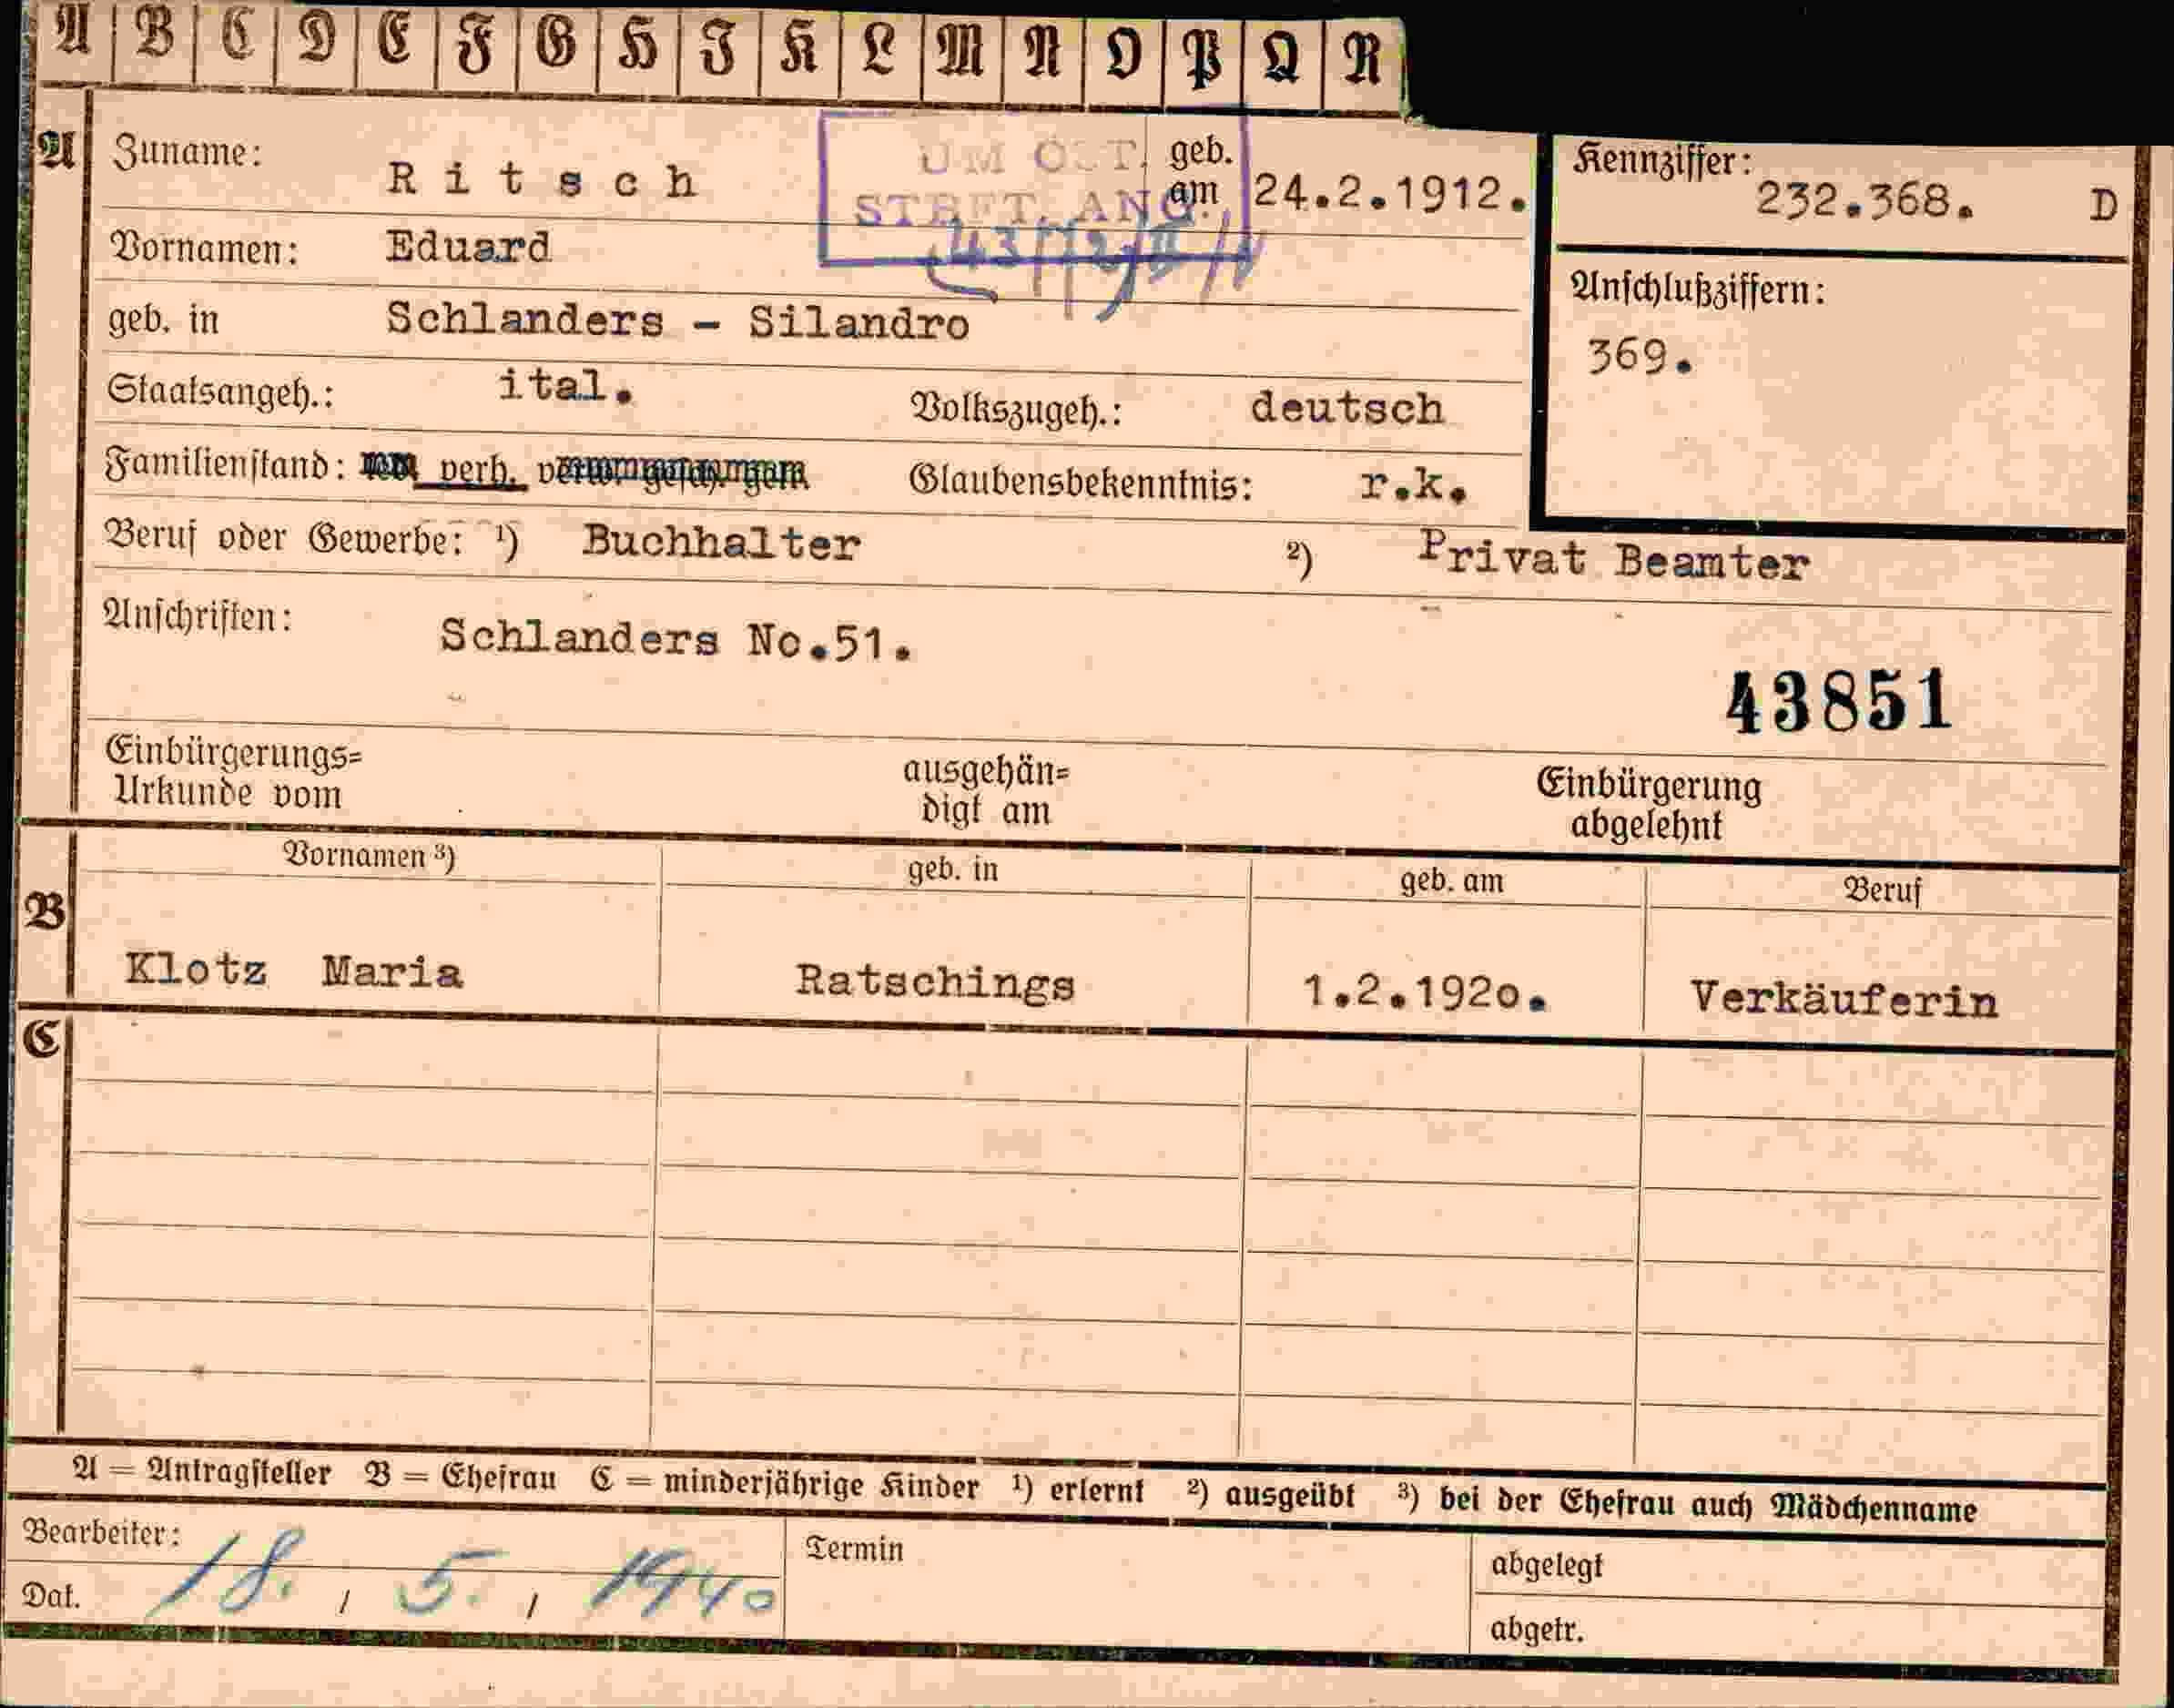 A B C D E F G H J K L M N O P Q R
A Zuname: Ritsch geb. am 24.2.1912. Kennziffer: 232.368. D
UM OST.
STBFT. ANG.
Vornamen: Eduard
Anschlußziffern:
geb. in Schlanders - Silandro
369.
Staatsangeh.: ital. Volkszugeh.: deutsch
Familienstand: verh. Glaubensbekenntnis: r.k.
Beruf oder Gewerbe: 1) Buchhalter 2) Privat Beamter
Anschriften: Schlanders No.51.
43851
Einbürgerungs=
Urkunde vom
ausgehän=
digt am
Einbürgerung
abgelehnt
B Vornamen 3) geb. in geb. am Beruf
Klotz Maria Ratschings 1.2.1920. Verkäuferin
C
A = Antragsteller B = Ehefrau C = minderjährige Kinder 1) erlernt 2) ausgeübt 3) bei der Ehefrau auch Mädchenname
Bearbeiter: Termin abgelegt
Dat. 18. / 5. / 1940
abgetr.